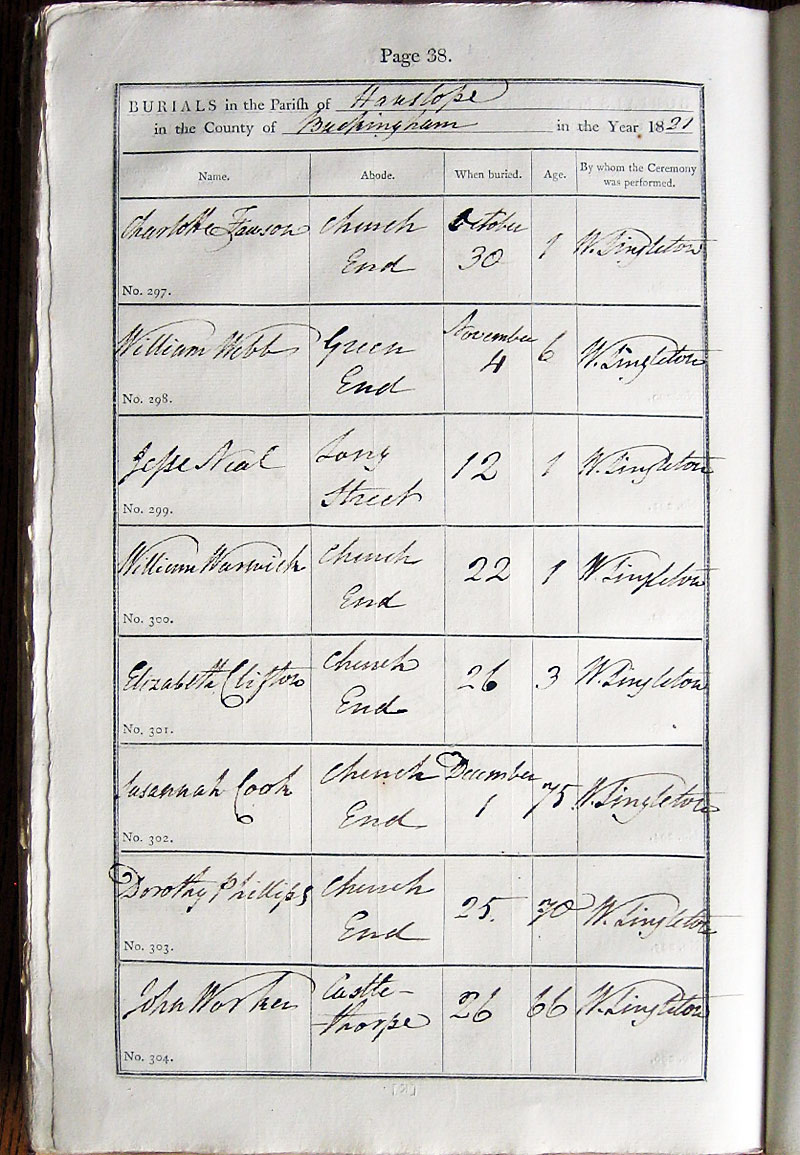 Page 38.
BURIALS in the Parish of Hanslope
in the County of Buckingham in the Year 1821
Name. Abode. When buried. Age. By whom the Ceremony was performed.
Charlotte Church October
End 30 1 W. Singleton
No. 297.
William Webb Green November
End 4 6 W. Singleton
No. 298.
Jesse Neal Long
Street 12 1 W. Singleton
No. 299.
William Warwick Church
End 22 1 W. Singleton
No. 300.
Elizabeth Clifton Church
End 26 3 W. Singleton
No. 301.
Susannah Cook Church December
End 1 75 W. Singleton
No. 302.
Dorothy Phillips Church
End 25. 70 W. Singleton
No. 303.
John Worker Castle-
thorpe 26 66 W. Singleton
No. 304.